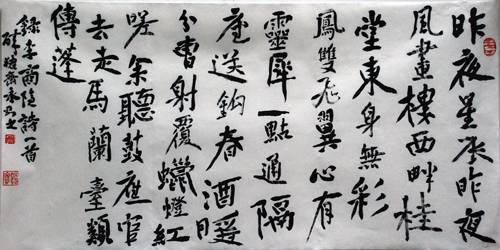 昨夜星辰昨夜
風畫樓西畔桂
堂東身無彩
鳳雙飛翼心有
靈犀一點通隔
座送鈎春酒暖
分曹射覆蠟燈紅
嗟余聽鼓應官
去走馬蘭臺類
傳蓬
錄李商隱詩一首